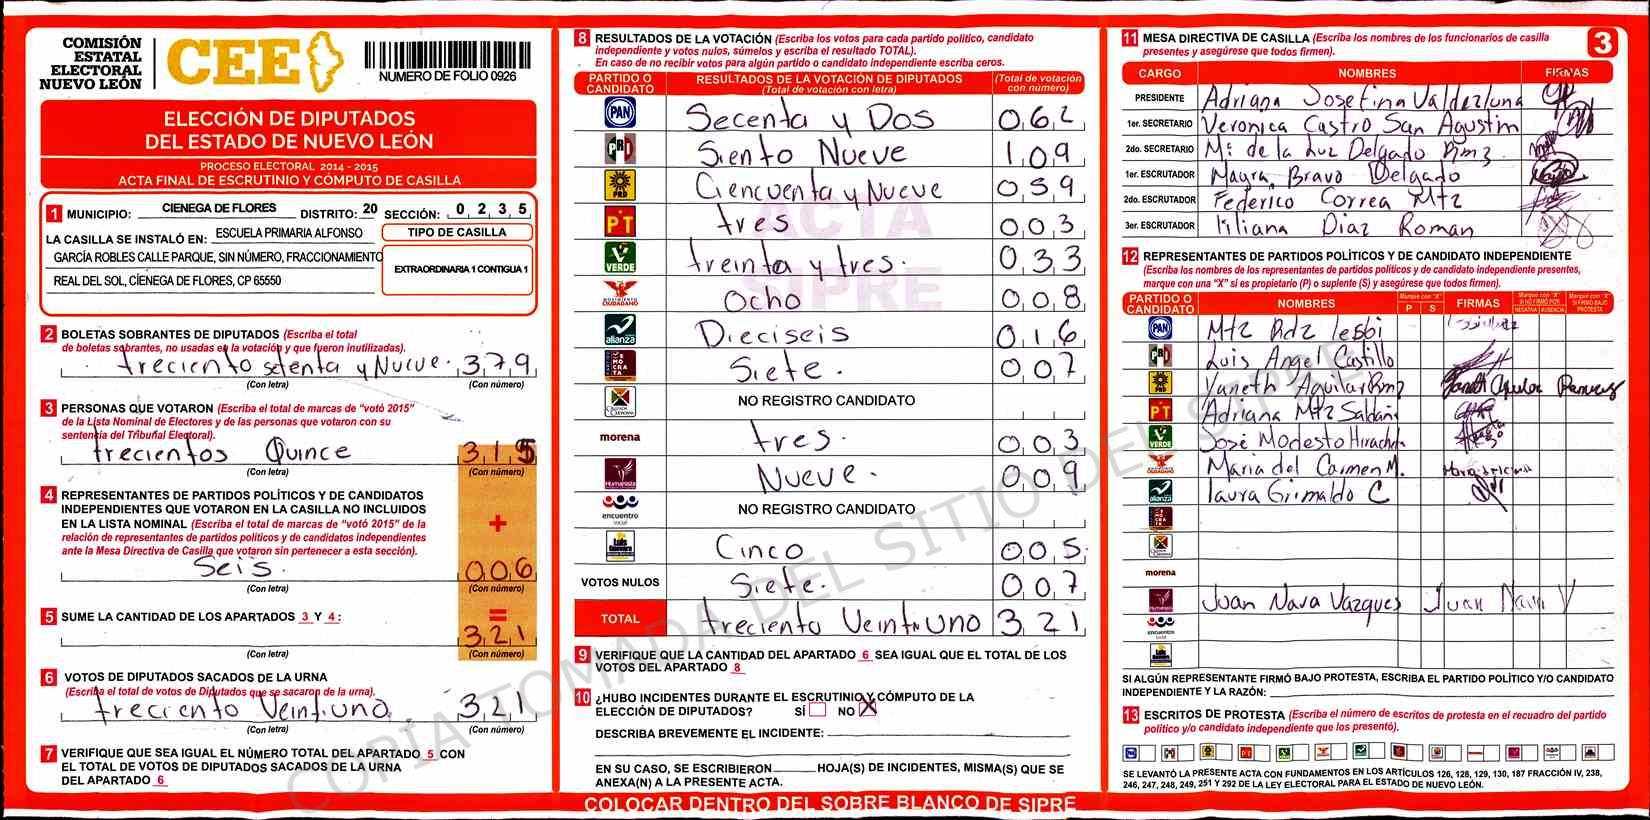 COMISIÓN
ESTATAL
ELECTORAL
NUEVO LEÓN
CEE
NUMERO DE FOLIO 0926
ELECCIÓN DE DIPUTADOS
DEL ESTADO DE NUEVO LEÓN
PROCESO ELECTORAL 2014 - 2015
ACTA FINAL DE ESCRUTINIO Y CÓMPUTO DE CASILLA
1 MUNICIPIO: CIENEGA DE FLORES DISTRITO: 20 SECCIÓN: 0 2 3 5
LA CASILLA SE INSTALÓ EN: ESCUELA PRIMARIA ALFONSO
GARCÍA ROBLES CALLE PARQUE, SIN NÚMERO, FRACCIONAMIENTO
REAL DEL SOL, CÍENEGA DE FLORES, CP 65550
TIPO DE CASILLA
EXTRAORDINARIA 1 CONTIGUA 1
2 BOLETAS SOBRANTES DE DIPUTADOS (Escriba el total
de boletas sobrantes, no usadas en la votación y que fueron inutilizadas).
treciento setenta y Nueve. 3,7,9
(Con letra) (Con número)
3 PERSONAS QUE VOTARON (Escriba el total de marcas de "votó 2015"
de la Lista Nominal de Electores y de las personas que votaron con su
sentencia del Tribunal Electoral).
trecientos Quince 3,1,5
(Con letra) (Con número)
4 REPRESENTANTES DE PARTIDOS POLÍTICOS Y DE CANDIDATOS
INDEPENDIENTES QUE VOTARON EN LA CASILLA NO INCLUIDOS
EN LA LISTA NOMINAL (Escriba el total de marcas de "votó 2015" de la
relación de representantes de partidos políticos y de candidatos independientes
ante la Mesa Directiva de Casilla que votaron sin pertenecer a esta sección).
+
Seis. 0,0,6
(Con letra) (Con número)
5 SUME LA CANTIDAD DE LOS APARTADOS 3 Y 4:
=
3,2,1
(Con letra) (Con número)
6 VOTOS DE DIPUTADOS SACADOS DE LA URNA
(Escriba el total de votos de Diputados que se sacaron de la urna).
treciento Veintiuno. 3,2,1
(Con letra) (Con número)
7 VERIFIQUE QUE SEA IGUAL EL NÚMERO TOTAL DEL APARTADO 5 CON
EL TOTAL DE VOTOS DE DIPUTADOS SACADOS DE LA URNA
DEL APARTADO 6
8 RESULTADOS DE LA VOTACIÓN (Escriba los votos para cada partido político, candidato
independiente y votos nulos, súmelos y escriba el resultado TOTAL).
En caso de no recibir votos para algún partido o candidato independiente escriba ceros.
PARTIDO O CANDIDATO RESULTADOS DE LA VOTACIÓN DE DIPUTADOS (Total de votación con letra) (Total de votación con número)
PAN Secenta y Dos 0,6,2
PRD Siento Nueve 1,0,9
PRD Ciencuenta y Nueve 0,5,9
PT tres 0,0,3
VERDE treinta y tres. 0,3,3
MOVIMIENTO CIUDADANO Ocho 0,0,8
alianza Dieciseis 0,1,6
DEMOCRATA Siete. 0,0,7
NO REGISTRO CANDIDATO
morena tres. 0,0,3
Humanista Nueve. 0,0,9
encuentro social NO REGISTRO CANDIDATO
Cinco 0,0,5
VOTOS NULOS Siete. 0,0,7
TOTAL treciento Veintiuno 3,2,1
9 VERIFIQUE QUE LA CANTIDAD DEL APARTADO 6 SEA IGUAL QUE EL TOTAL DE LOS
VOTOS DEL APARTADO 8
10 ¿HUBO INCIDENTES DURANTE EL ESCRUTINIO Y CÓMPUTO DE LA
ELECCIÓN DE DIPUTADOS? SÍ NO X
DESCRIBA BREVEMENTE EL INCIDENTE:
EN SU CASO, SE ESCRIBIERON HOJA(S) DE INCIDENTES, MISMA(S) QUE SE
ANEXA(N) A LA PRESENTE ACTA.
COLOCAR DENTRO DEL SOBRE BLANCO DE SIPRE
11 MESA DIRECTIVA DE CASILLA (Escriba los nombres de los funcionarios de casilla
presentes y asegúrese que todos firmen).
3
CARGO NOMBRES FIRMAS
PRESIDENTE Adriana Josefina Valdez luna
1er. SECRETARIO Veronica Castro San Agustin
2do. SECRETARIO Ma de la Luz Delgado Rmz
1er. ESCRUTADOR Mayra Bravo Delgado
2do. ESCRUTADOR Federico Correa Mtz
3er. ESCRUTADOR liliana Diaz Roman
12 REPRESENTANTES DE PARTIDOS POLÍTICOS Y DE CANDIDATO INDEPENDIENTE
(Escriba los nombres de los representantes de partidos políticos y de candidato independiente presentes,
marque con una "X" si es propietario (P) o suplente (S) y asegúrese que todos firmen).
PARTIDO O CANDIDATO NOMBRES Marque con "X" P S FIRMAS Marque con "X" SI NO FIRMÓ POR: NEGATIVA AUSENCIA Marque con "X" SI FIRMÓ BAJO PROTESTA
PAN Mtz Rdz lesbi
Luis Angel Castillo
PRD Yaneth Aguilar Rmz
PT Adriana Mtz Saldañ
VERDE José Modesto Hirachi
Maria del Carmen M.
alianza laura Grimaldo C
morena
Humanista Juan Nava Vazques Juan Nava V
encuentro social
SI ALGÚN REPRESENTANTE FIRMÓ BAJO PROTESTA, ESCRIBA EL PARTIDO POLÍTICO Y/O CANDIDATO
INDEPENDIENTE Y LA RAZÓN:
13 ESCRITOS DE PROTESTA (Escriba el número de escritos de protesta en el recuadro del partido
político y/o candidato independiente que los presentó).
SE LEVANTÓ LA PRESENTE ACTA CON FUNDAMENTOS EN LOS ARTÍCULOS 126, 128, 129, 130, 187 FRACCIÓN IV, 238,
246, 247, 248, 249, 251 Y 292 DE LA LEY ELECTORAL PARA EL ESTADO DE NUEVO LEÓN.
ACTA
SIPRE
COPIA TOMADA DEL SITIO DEL SIPRE